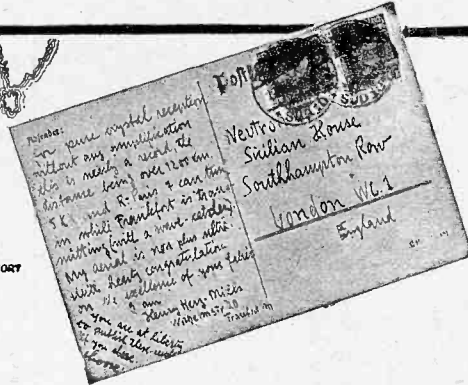 For pure crystal reception
without any amplification
this is nearly a record the
distance being over 1200 km.
and R. Paris I can tune
in while Frankfort is trans-
mitting (with a wave-catcher)
my aerial is non plus ultra.
With hearty congratulation
on the excellence of your
I am
Henry
20
You are at liberty
to publish these
if you
choose.
POST
Neutron
Sicilian House
Southhampton Row
London WC.1
England
ORT